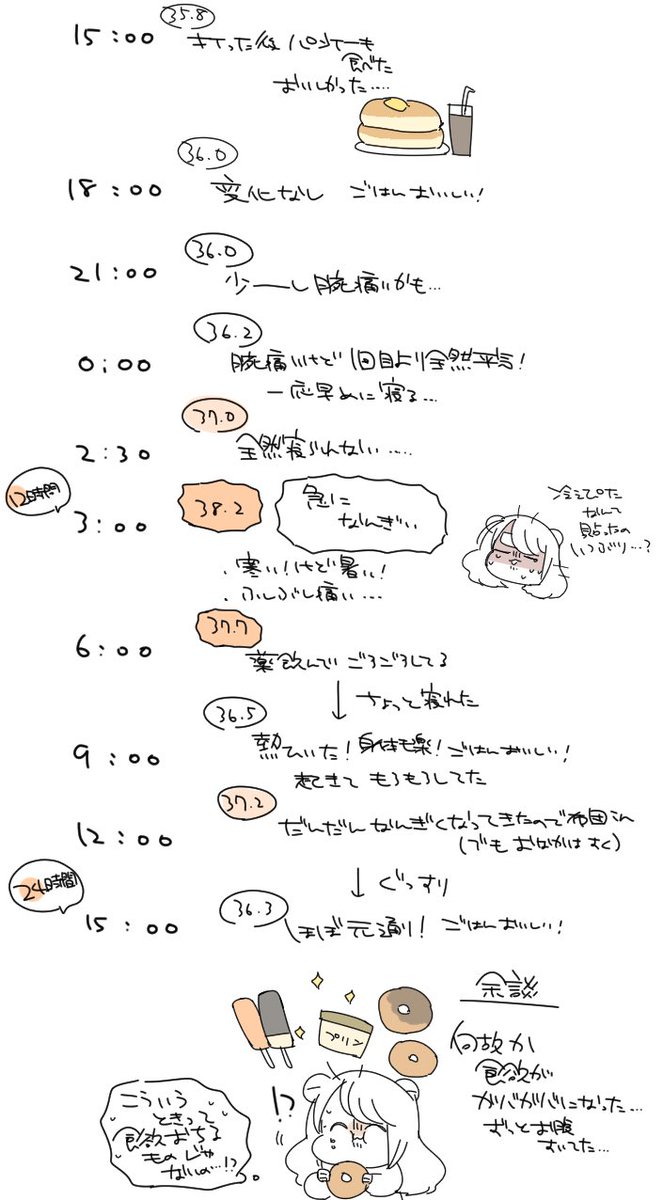 35.8
15:00 きてった後 パンケーキ
食べた
おいしかった....
36.0
18:00 変化なし ごはんおいしい!
36.0
21:00 少ーし 腕痛いかも...
36.2
0:00 腕痛いけど 1回目より全然平気!
一応早めに寝る...
37.0
2:30 全然寝られない....
12時間
3:00 38.2 急に
なんぎぃ
冷えピタ
なんて
貼ったの
いつぶり...?
・寒い!けど暑い!
・ふしぶし痛い...
37.7
6:00 薬飲んで ごろごろしてる
↓ ちょっと寝れた
36.5
9:00 熱ひいた!身体も楽!ごはんおいしい!
起きて もろもろしてた
37.2
12:00 だんだん なんぎくなってきたので布団イン
(でも おなかはすく)
↓ ぐっすり
24時間
15:00 36.3 ほぼ元通り! ごはんおいしい!
余談
プリン
何故か
食欲が
ガバガバになった...
ずっとお腹
すいてた...
!?
こういう
ときって
食欲おちる
ものじゃ
ないの...!?